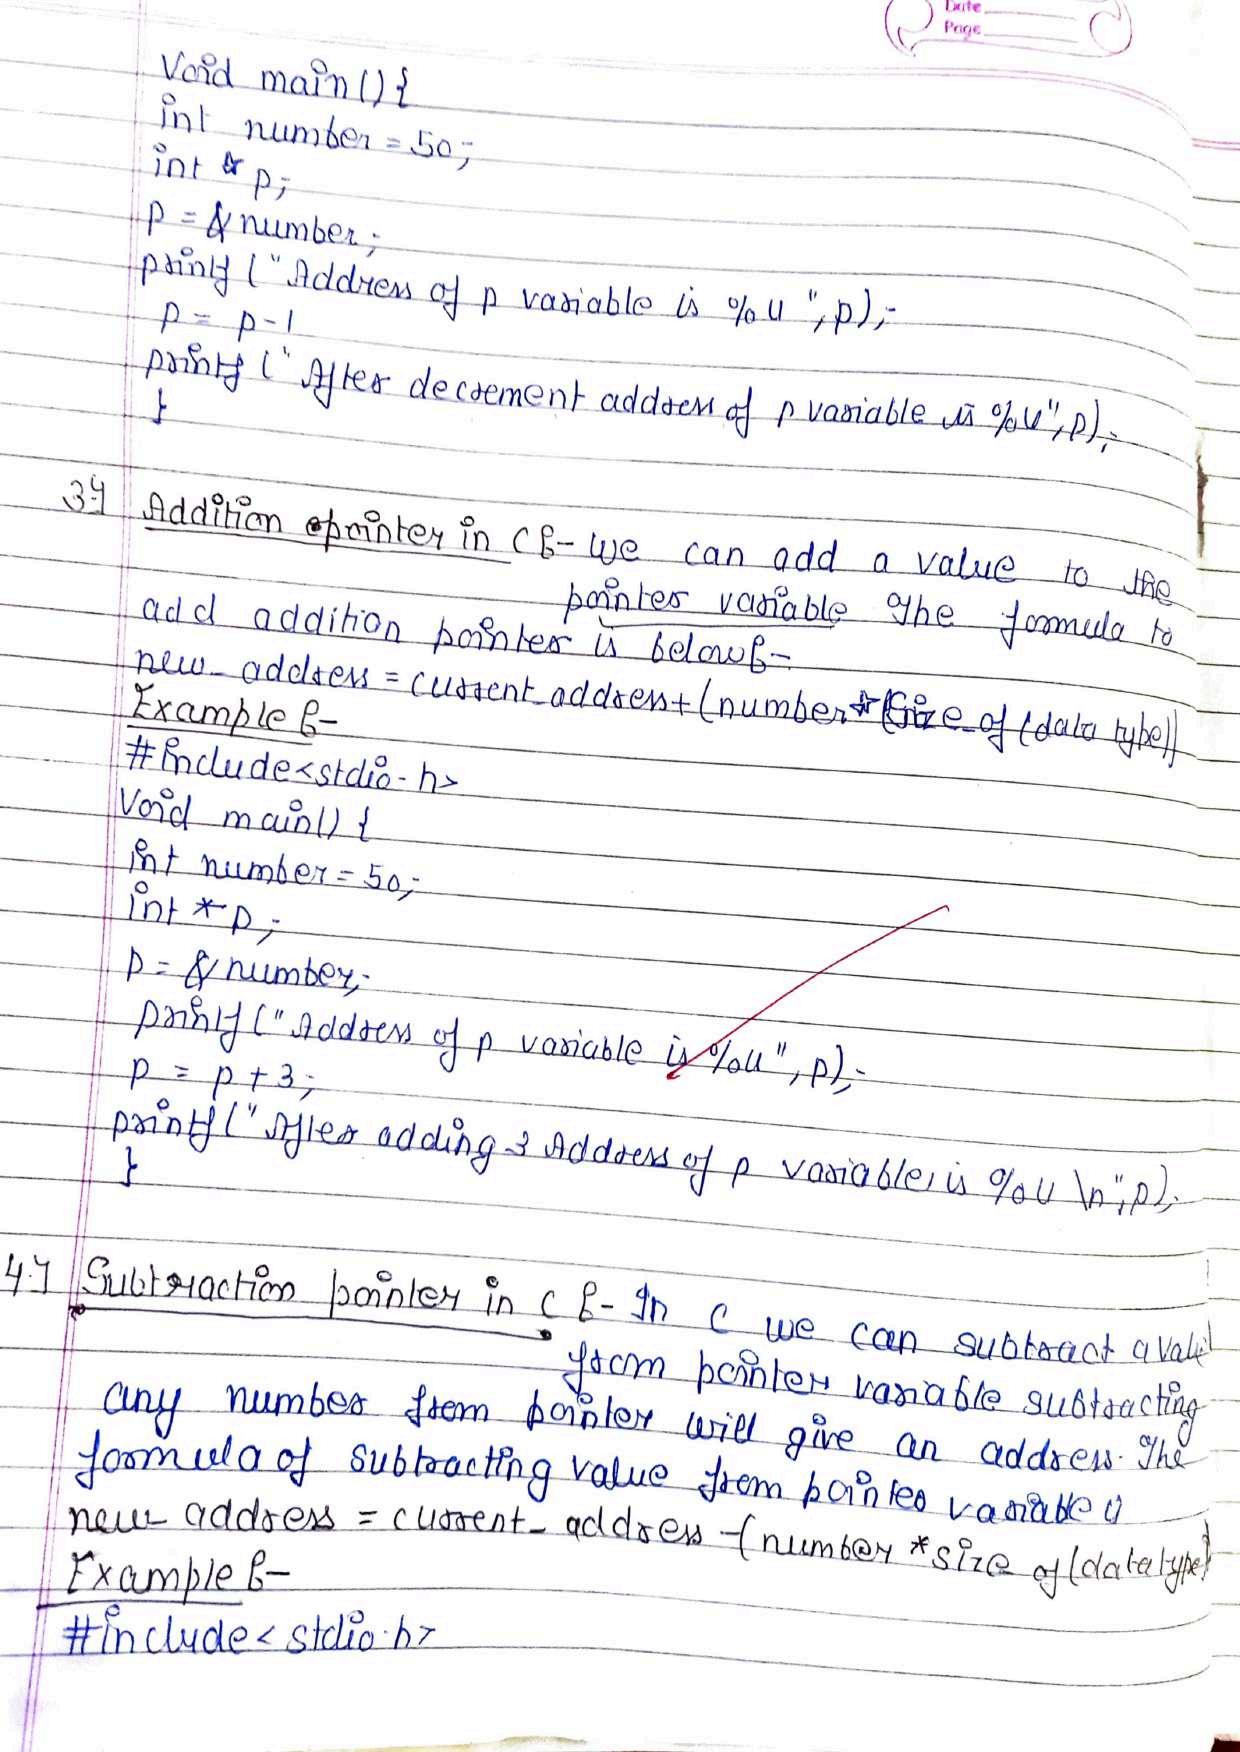 Date
Page
Void main(){
int number = 50;
int * p;
p = & number;
printf ("Address of p variable is %u", p);
p = p-1
printf ("After decrement address of p variable is %u", p);
}
3.} Addition pointer in C :- We can add a value to the
pointer variable The formula to
add addition pointer is below :-
new_address = current_address + (number * (Size_of (data type))
Example :-
#include<stdio.h>
Void main() {
int number = 50;
int * p;
p = & number;
printf ("Address of p variable is %u", p);
p = p + 3;
printf ("After adding 3 Address of p variable, is %u \n", p);
}
4.} Subtraction pointer in C :- In C we can subtract a valu
from pointer variable subtracting
any number from pointer will give an address. The
formula of subtracting value from pointer variable
new address = current_ address - (number * size of (data type)
Example :-
#include< stdio.h>